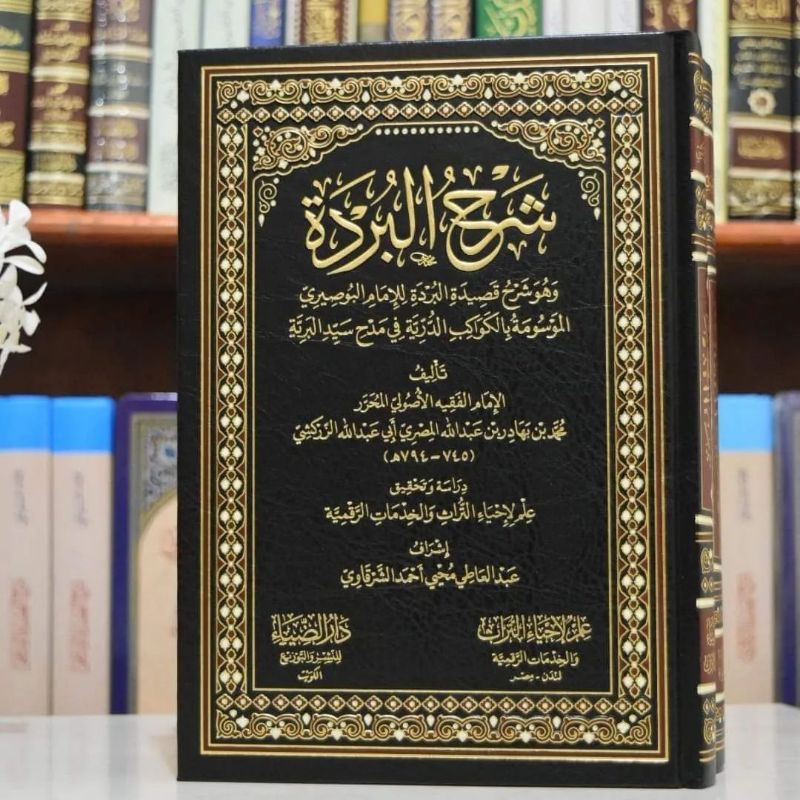 شَرْحُ البُرْدَة
وَهُوَ شَرْحُ قَصِيدَةِ البُرْدَةِ لِلإِمَامِ البُوصِيرِيِّ
المَوْسُومَةُ بِالكَوَاكِبِ الدُّرِّيَّةِ فِي مَدْحِ سَيِّدِ البَرِيَّةِ
تَأْلِيفُ
الإِمَامِ الفَقِيهِ الأُصُولِيِّ المُحَرِّر
مُحَمَّد بْن بَهَادر بْن عَبْدالله المِصْرِي أَبِي عَبْدالله الزَّرْكَشِيّ
(٧٤٥ - ٧٩٤هـ)
دِرَاسَة وَتَحْقِيق
عِلم لإِحْيَاءِ التُّرَاثِ وَالخِدْمَاتِ الرَّقْمِيَّة
إِشْرَافُ
عَبْدالعَاطِي مُحْيِي أَحْمَد الشَّرْقَاوِي
عِلم لإِحْيَاءِ التُّرَاث
وَالخِدْمَاتِ الرَّقْمِيَّة
لندن - مصر
دَارُ الضِّيَاء
لِلنَّشْرِ وَالتَّوْزِيعِ
الكُوَيْت